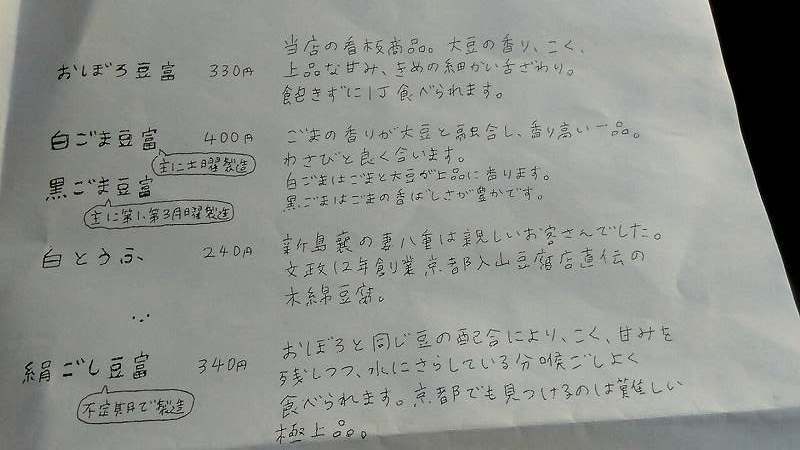 おぼろ豆富 330円
当店の看板商品。大豆の香り、こく、
上品な甘み、きめの細かい舌ざわり。
飽きずに1丁食べられます。
白ごま豆富 400円
主に土曜製造
ごまの香りが大豆と融合し、香り高い一品。
わさびと良く合います。
黒ごま豆富
主に第1、第3月曜製造
白ごまはごまと大豆が上品に香ります。
黒ごまはごまの香ばしさが豊かです。
白とうふ 240円
新島襄の妻八重は親しいお客さんでした。
文政12年創業京都入山豆腐店直伝の
木綿豆腐。
絹ごし豆富 340円
不定期で製造
おぼろと同じ豆の配合により、こく、甘みを
残しつつ、水にさらしている分喉ごしよく
食べられます。京都でも見つけるのは難しい
極上品。